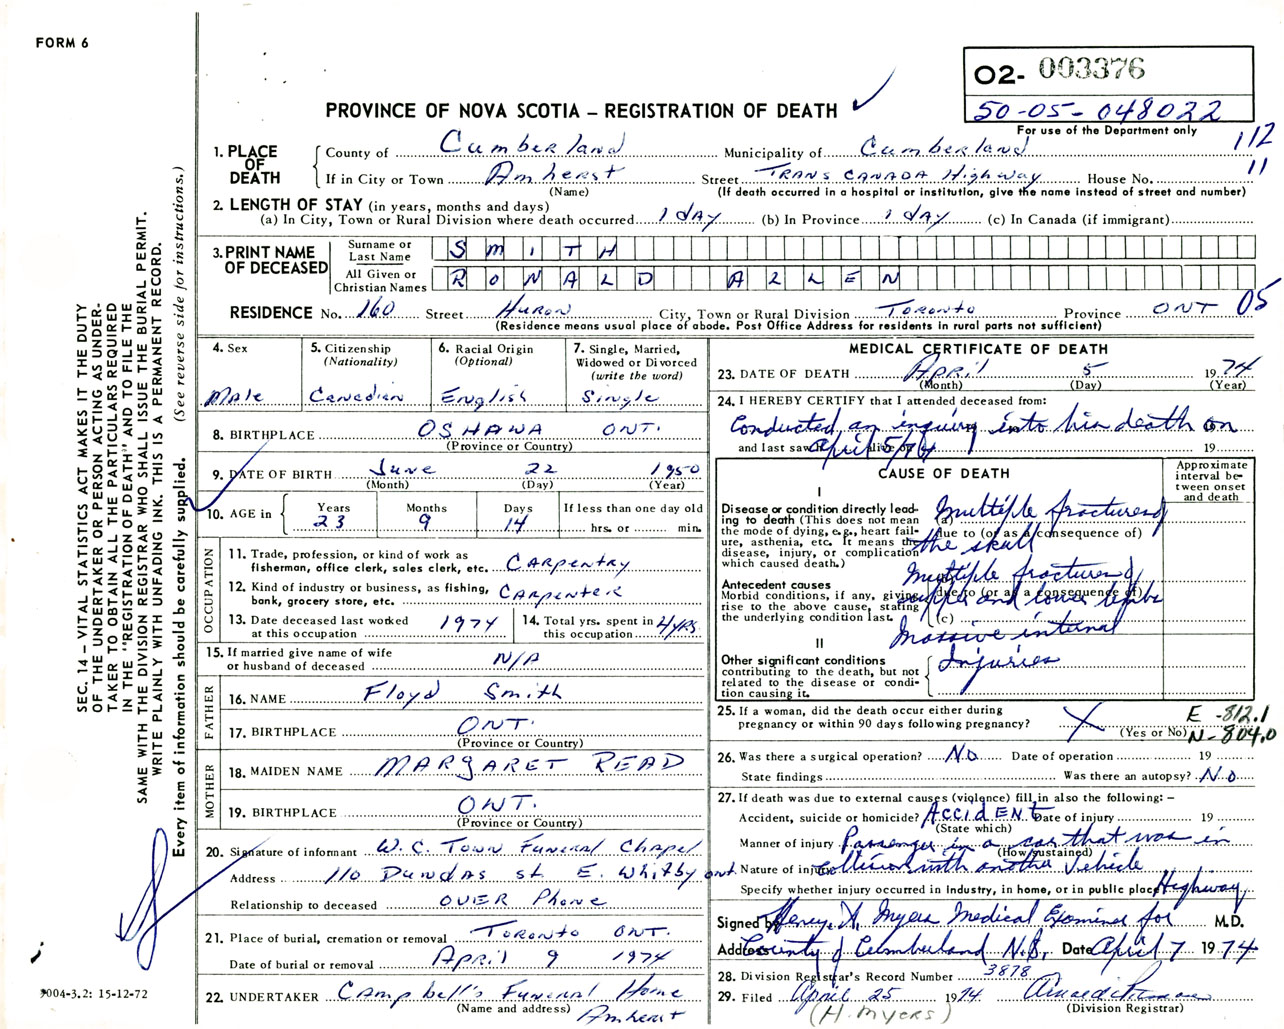 FORM 6
O2- 003376
50-05-048022
For use of the Department only
PROVINCE OF NOVA SCOTIA – REGISTRATION OF DEATH
112
11
1. PLACE OF DEATH
County of Cumberland Municipality of Cumberland
If in City or Town Amherst Street TRANS CANADA Highway House No.
(Name) (If death occurred in a hospital or institution, give the name instead of street and number)
2. LENGTH OF STAY (in years, months and days)
(a) In City, Town or Rural Division where death occurred 1 day (b) In Province 1 day (c) In Canada (if immigrant)
3. PRINT NAME OF DECEASED
Surname or Last Name SMITH
All Given or Christian Names RONALD ALLEN
RESIDENCE No. 160 Street Huron City, Town or Rural Division Toronto Province ONT 05
(Residence means usual place of abode. Post Office Address for residents in rural parts not sufficient)
4. Sex
Male
5. Citizenship (Nationality)
Canadian
6. Racial Origin (Optional)
English
7. Single, Married, Widowed or Divorced (write the word)
Single
8. BIRTHPLACE OSHAWA ONT.
(Province or Country)
9. DATE OF BIRTH June 22 1950
(Month) (Day) (Year)
10. AGE in Years Months Days If less than one day old
23 9 14 hrs. or min.
OCCUPATION
11. Trade, profession, or kind of work as fisherman, office clerk, sales clerk, etc. CARPENTRY
12. Kind of industry or business, as fishing, bank, grocery store, etc. CARPENTER
13. Date deceased last worked at this occupation 1974
14. Total yrs. spent in this occupation 4 yrs
15. If married give name of wife or husband of deceased N/A
FATHER
16. NAME Floyd Smith
17. BIRTHPLACE ONT.
(Province or Country)
MOTHER
18. MAIDEN NAME MARGARET READ
19. BIRTHPLACE ONT.
(Province or Country)
20. Signature of informant W.C. TOWN FUNERAL CHAPEL
Address 110 DUNDAS St. E. Whitby ont
Relationship to deceased OVER Phone
21. Place of burial, cremation or removal TORONTO ONT.
Date of burial or removal APRIL 9 1974
22. UNDERTAKER CAMPbell's Funeral Home
(Name and address) Amherst
MEDICAL CERTIFICATE OF DEATH
23. DATE OF DEATH APRIL 5 1974
(Month) (Day) (Year)
24. I HEREBY CERTIFY that I attended deceased from:
Conducted an inquiry into his death on
and last saw alive on 19
April 5/74
CAUSE OF DEATH
Approximate interval between onset and death
I
Disease or condition directly leading to death (This does not mean the mode of dying, e.g., heart failure, asthenia, etc. It means the disease, injury, or complication which caused death.)
(a) Multiple fractures of
due to (or as a consequence of)
the skull
Antecedent causes
Morbid conditions, if any, giving rise to the above cause, stating the underlying condition last.
Multiple fractures of
due to (or as a consequence of)
upper and lower limbs
(c)
Massive internal
II
Injuries
Other significant conditions contributing to the death, but not related to the disease or condition causing it.
25. If a woman, did the death occur either during pregnancy or within 90 days following pregnancy? X
(Yes or No)
E -812.1
N-804.0
26. Was there a surgical operation? No Date of operation 19
State findings Was there an autopsy? No
27. If death was due to external causes (violence) fill in also the following: –
Accident, suicide or homicide? ACCIDENT Date of injury 19
(State which)
Manner of injury Passenger in a car that was in
(How sustained)
Nature of injury collision with another Vehicle
Specify whether injury occurred in Industry, in home, or in public place Highway
Signed by Henry A. Myers Medical Examiner for M.D.
Address County of Cumberland N.S. Date April 7 1974
28. Division Registrar's Record Number 3878
29. Filed April 25 1974
(H. MYERS) (Division Registrar)
SEC. 14 – VITAL STATISTICS ACT MAKES IT THE DUTY
OF THE UNDERTAKER OR PERSON ACTING AS UNDER-
TAKER TO OBTAIN ALL THE PARTICULARS REQUIRED
IN THE "REGISTRATION OF DEATH" AND TO FILE THE
SAME WITH THE DIVISION REGISTRAR WHO SHALL ISSUE THE BURIAL PERMIT.
WRITE PLAINLY WITH UNFADING INK. THIS IS A PERMANENT RECORD.
Every item of information should be carefully supplied. (See reverse side for instructions.)
9004-3.2: 15-12-72